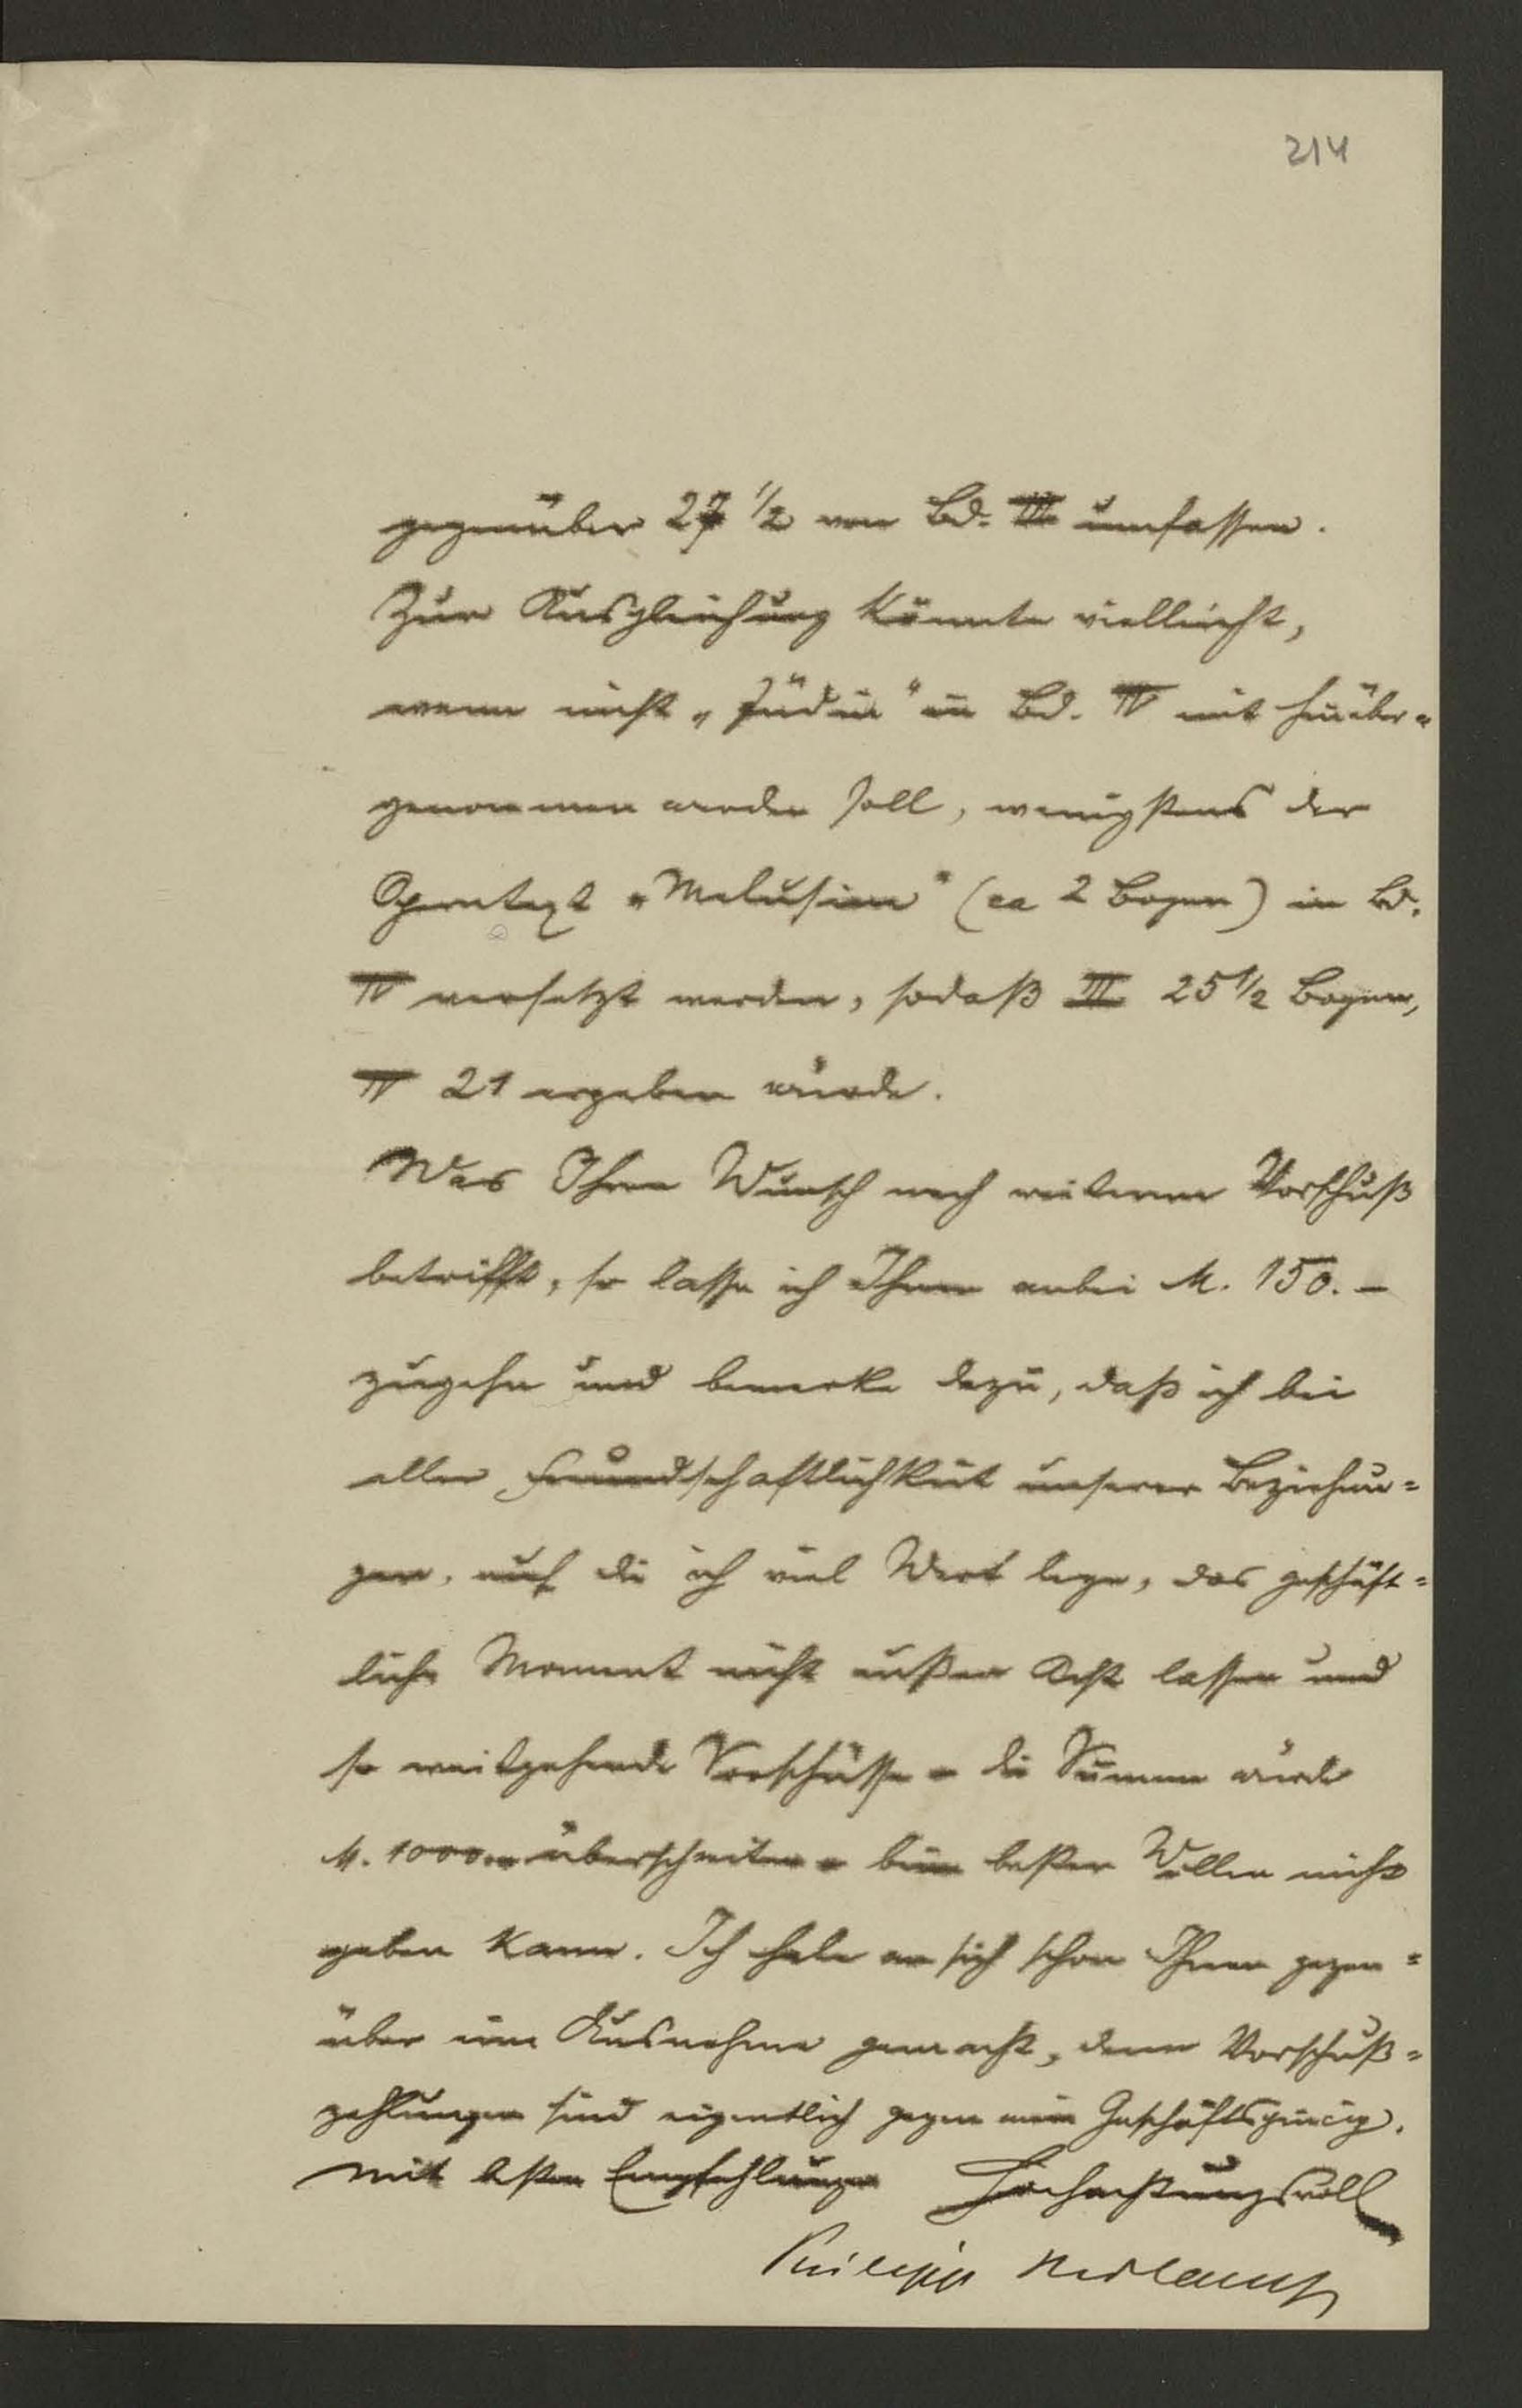 214
gegenüber 27 1/2 von Bd. III umfassen.
Zur Ausgleichung könnte vielleicht,
wenn nicht „Jüdin" in Bd. IV mit hinüber=
genommen werden soll, wenigstens der
Operntext „Melusine" (ca 2 Bogen) in Bd.
IV versetzt werden, sodaß III 25 1/2 Bogen,
IV 21 ergeben würde.
Was Ihren Wunsch nach weiterem Vorschuß
betrifft, so lasse ich Ihnen anbei M. 150.–
zugehn und bemerke dazu, daß ich bei
aller Freundschaftlichkeit unserer Beziehun=
gen, auf die ich viel Wert lege, das geschäft=
liche Moment nicht außer Acht lassen und
so weitgehende Vorschüsse – die Summe würde
M. 1000.– überschreiten – beim besten Willen nicht
geben kann. Ich habe an sich schon Ihnen gegen=
über eine Ausnahme gemacht, denn Vorschuß=
zahlungen sind eigentlich gegen mein Geschäftsprincip.
Mit besten Empfehlungen Hochachtungsvoll
Philipp Reclam jr